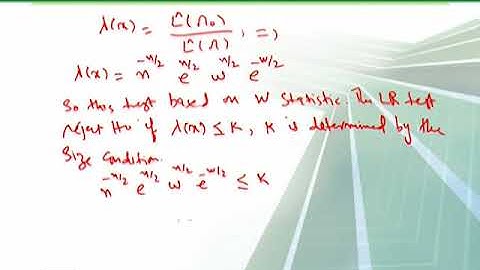 λ(x) = L̂(Λ₀) / L̂(Λ) , ⇒
λ(x) = n^{-n/2} e^{n/2} w^{n/2} e^{-w/2}
So this test based on W statistic. The LR test
reject Ho if λ(x) ≤ K, K is determined by the
Size condition.
n^{-n/2} e^{n/2} w^{n/2} e^{-w/2} ≤ K